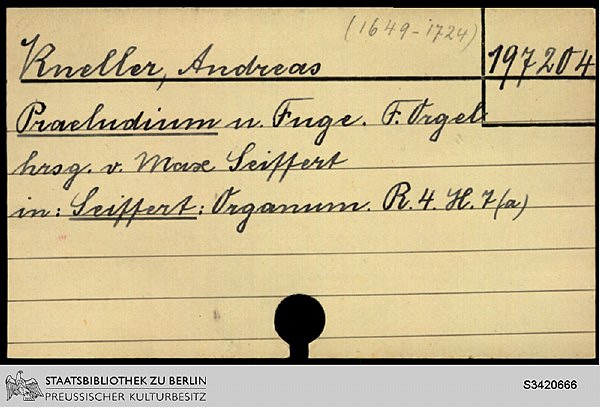 (1649-1724)
Kneller, Andreas
197204
Praeludium u. Fuge. F. Orgel
hrsg. v. Max Seiffert
in: Seiffert: Organum. R. 4. H. 7 (a)
STAATSBIBLIOTHEK ZU BERLIN
PREUSSISCHER KULTURBESITZ
S3420666